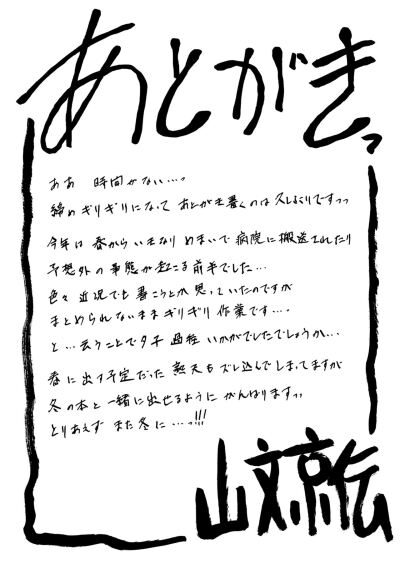 あとがきっ
ああ 時間がない…っ
締めギリギリになって あとがき書くのは久しぶりですっっ
今年は 春から いきなり めまいで 病院に搬送されたり
予想外の事態が起こる前半でした…
色々 近況でも書こうとか 思っていたのですが
まとめられないまま ギリギリ 作業です…。
と…云うことで夕子 過程 いかがでしたでしょうか…
春に出す予定だった 熟夫も ズレ込んでしまってますが
冬の本と 一緒に出せるように がんばりますっっ
とりあえず また 冬に…っ!!!
山文京伝